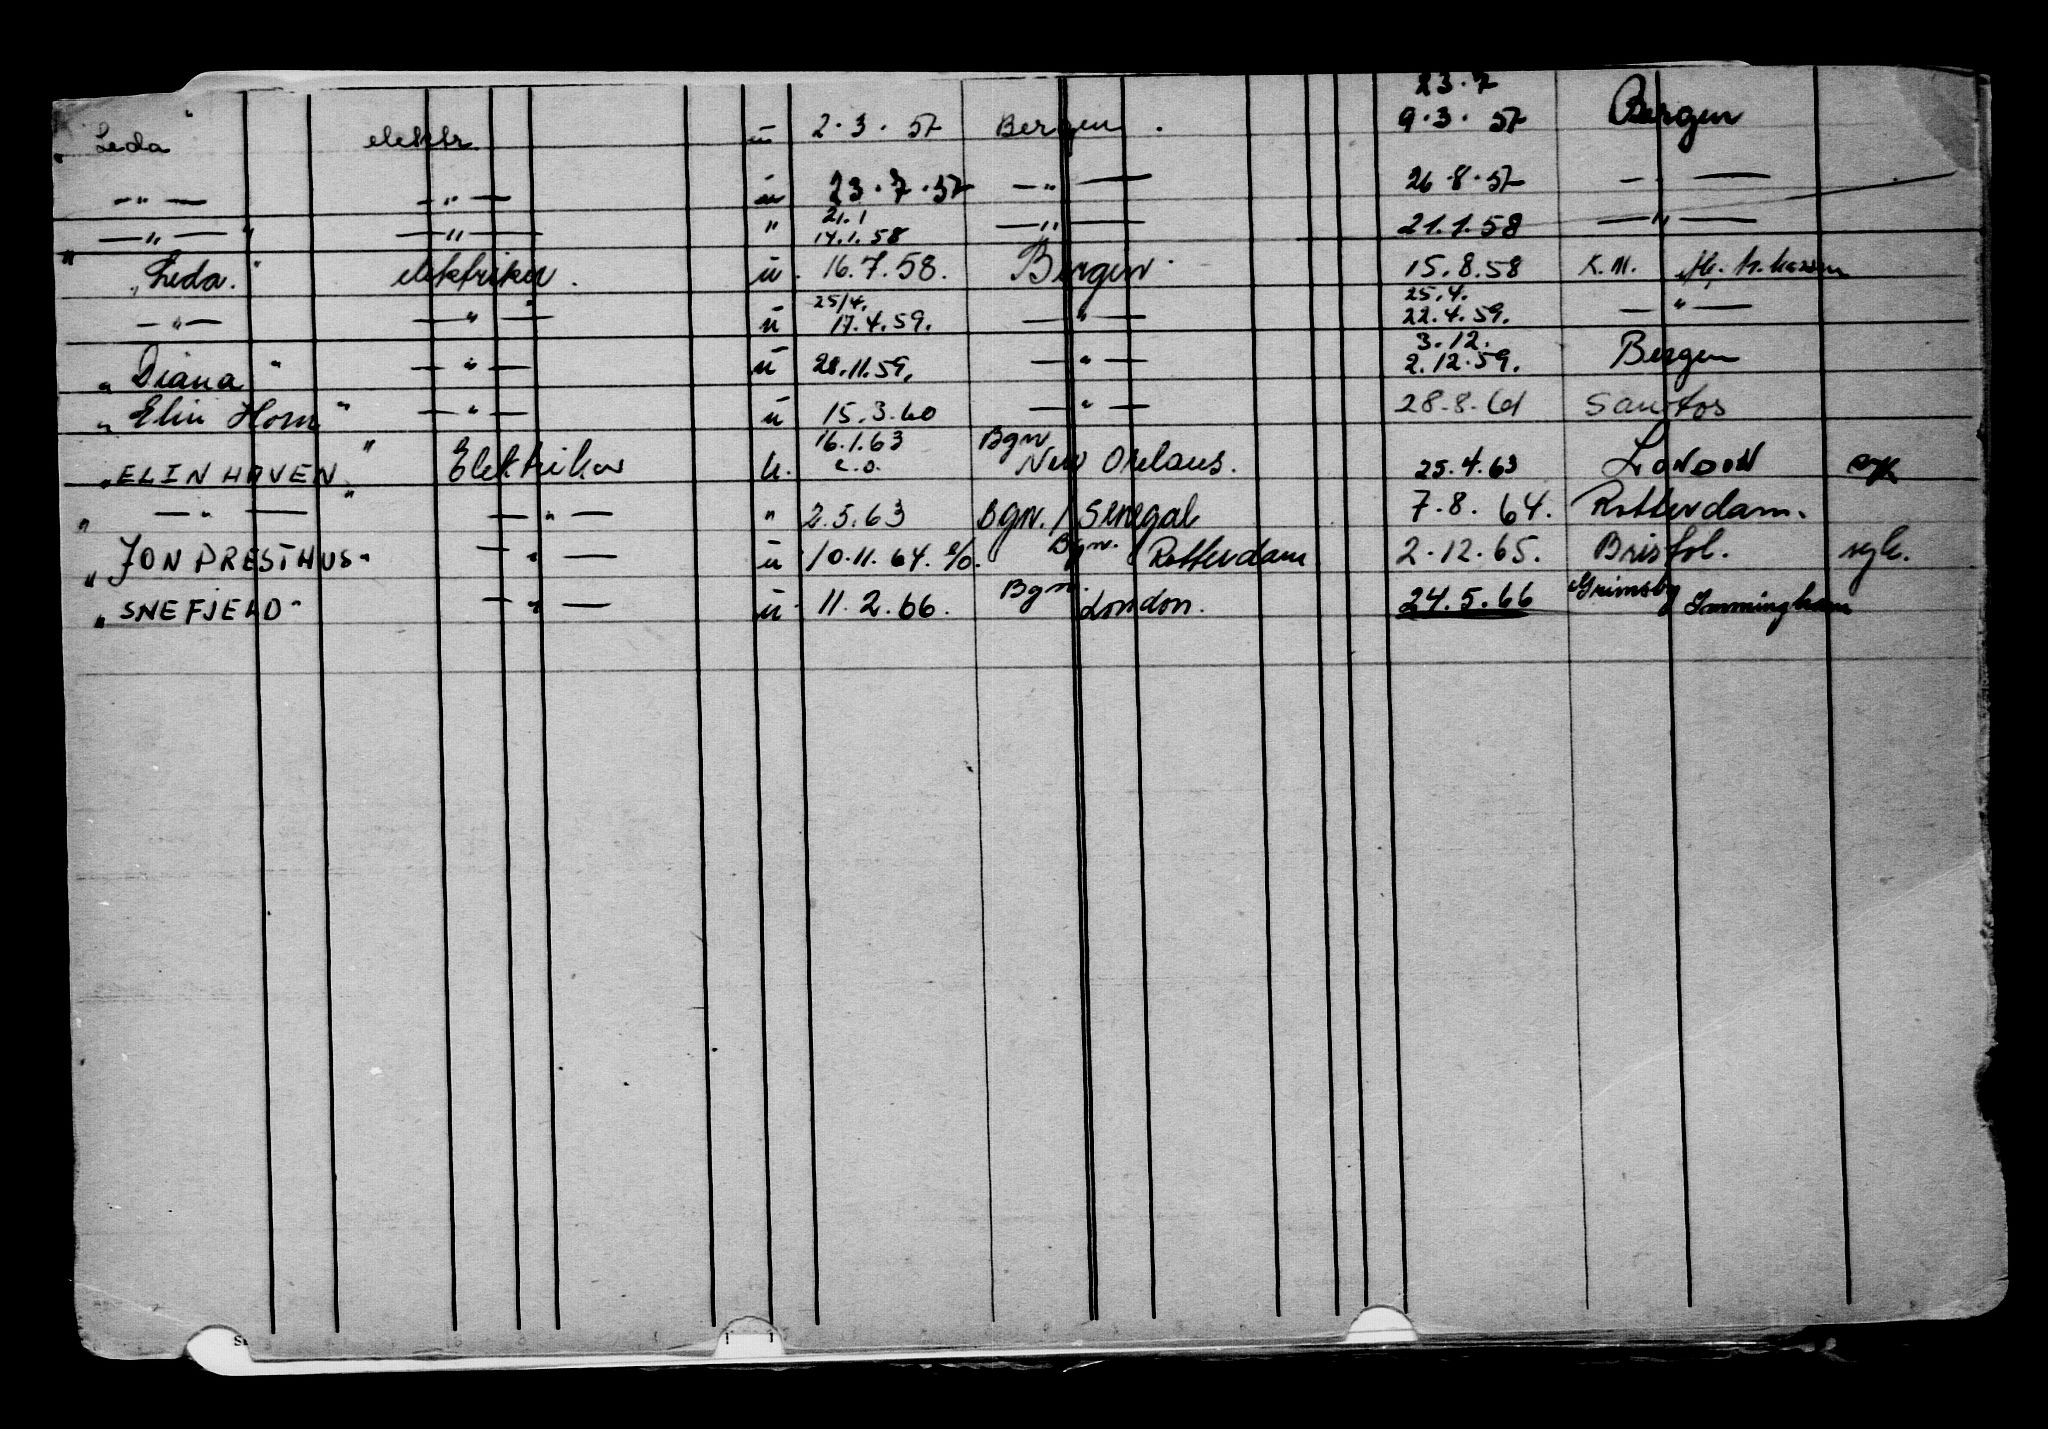 23.7
" Leda " elektr. u 2.3.57 Bergen. 9.3.57 Bergen
— " — — " — u 23.7.57 — " — 26.8.57 — " —
21.1
— " — " — " — " 14.1.58 — " — 21.1.58 — " —
" Leda." elektriker. u. 16.7.58. Bergen. 15.8.58 K.M.
25/4. 25.4.
— " — — " — u 17.4.59. — " — 22.4.59. — " —
3.12.
" Diana " — " — u 28.11.59. — " — 2.12.59. Bergen
" Elin Horn " — " — u 15.3.60 — " — 28.8.61 Santos
16.1.63 Bgn
" ELIN HAVEN " Elektriker u. e.o. New Orelans. 25.4.63 LONDON syk
" — " — " — " — " 2.5.63 Bgn. / Senegal 7.8.64. Rotterdam.
" JON PRESTHUS " — " — u 10.11.64. e/o. Bgn. Rotterdam 2.12.65. Bristol. syk.
" SNEFJELD " — " — u 11.2.66. Bgn. London. 24.5.66 Grimsby Immingham